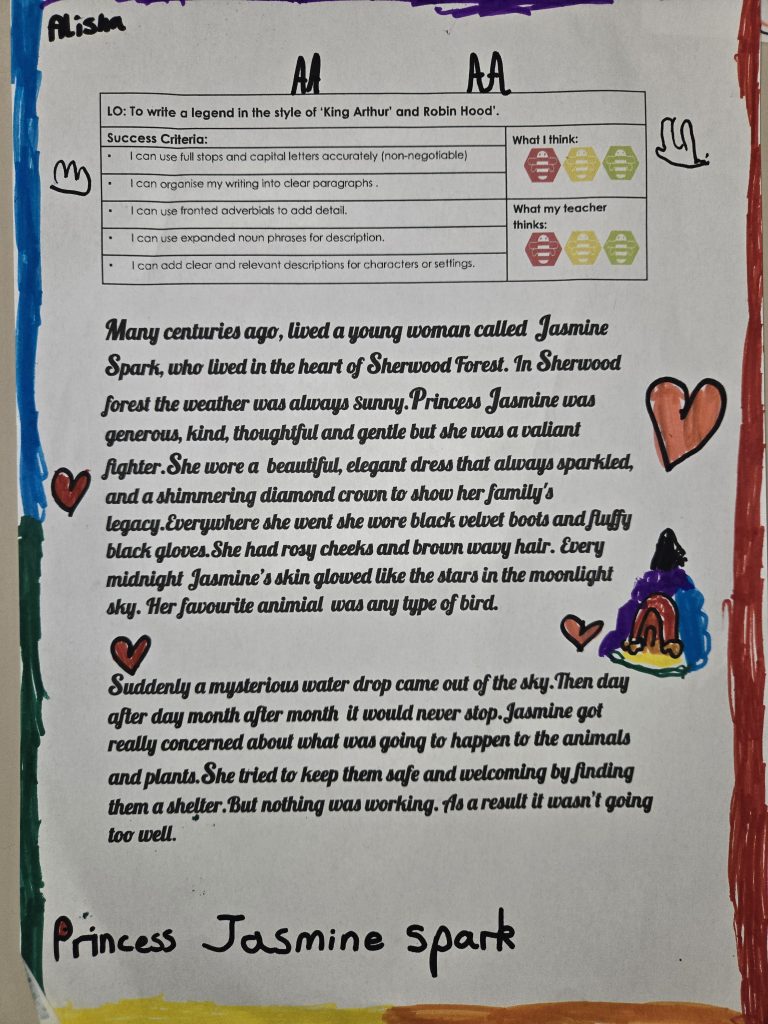 Alisha
AA AA
LO: To write a legend in the style of 'King Arthur' and Robin Hood'.
Success Criteria:
• I can use full stops and capital letters accurately (non-negotiable)
• I can organise my writing into clear paragraphs .
• I can use fronted adverbials to add detail.
• I can use expanded noun phrases for description.
• I can add clear and relevant descriptions for characters or settings.
What I think:
What my teacher
thinks:
Many centuries ago, lived a young woman called Jasmine
Spark, who lived in the heart of Sherwood Forest. In Sherwood
forest the weather was always sunny.Princess Jasmine was
generous, kind, thoughtful and gentle but she was a valiant
fighter.She wore a beautiful, elegant dress that always sparkled,
and a shimmering diamond crown to show her family's
legacy.Everywhere she went she wore black velvet boots and fluffy
black gloves.She had rosy cheeks and brown wavy hair. Every
midnight Jasmine's skin glowed like the stars in the moonlight
sky. Her favourite animial was any type of bird.
Suddenly a mysterious water drop came out of the sky.Then day
after day month after month it would never stop.Jasmine got
really concerned about what was going to happen to the animals
and plants.She tried to keep them safe and welcoming by finding
them a shelter.But nothing was working. As a result it wasn't going
too well.
Princess Jasmine spark